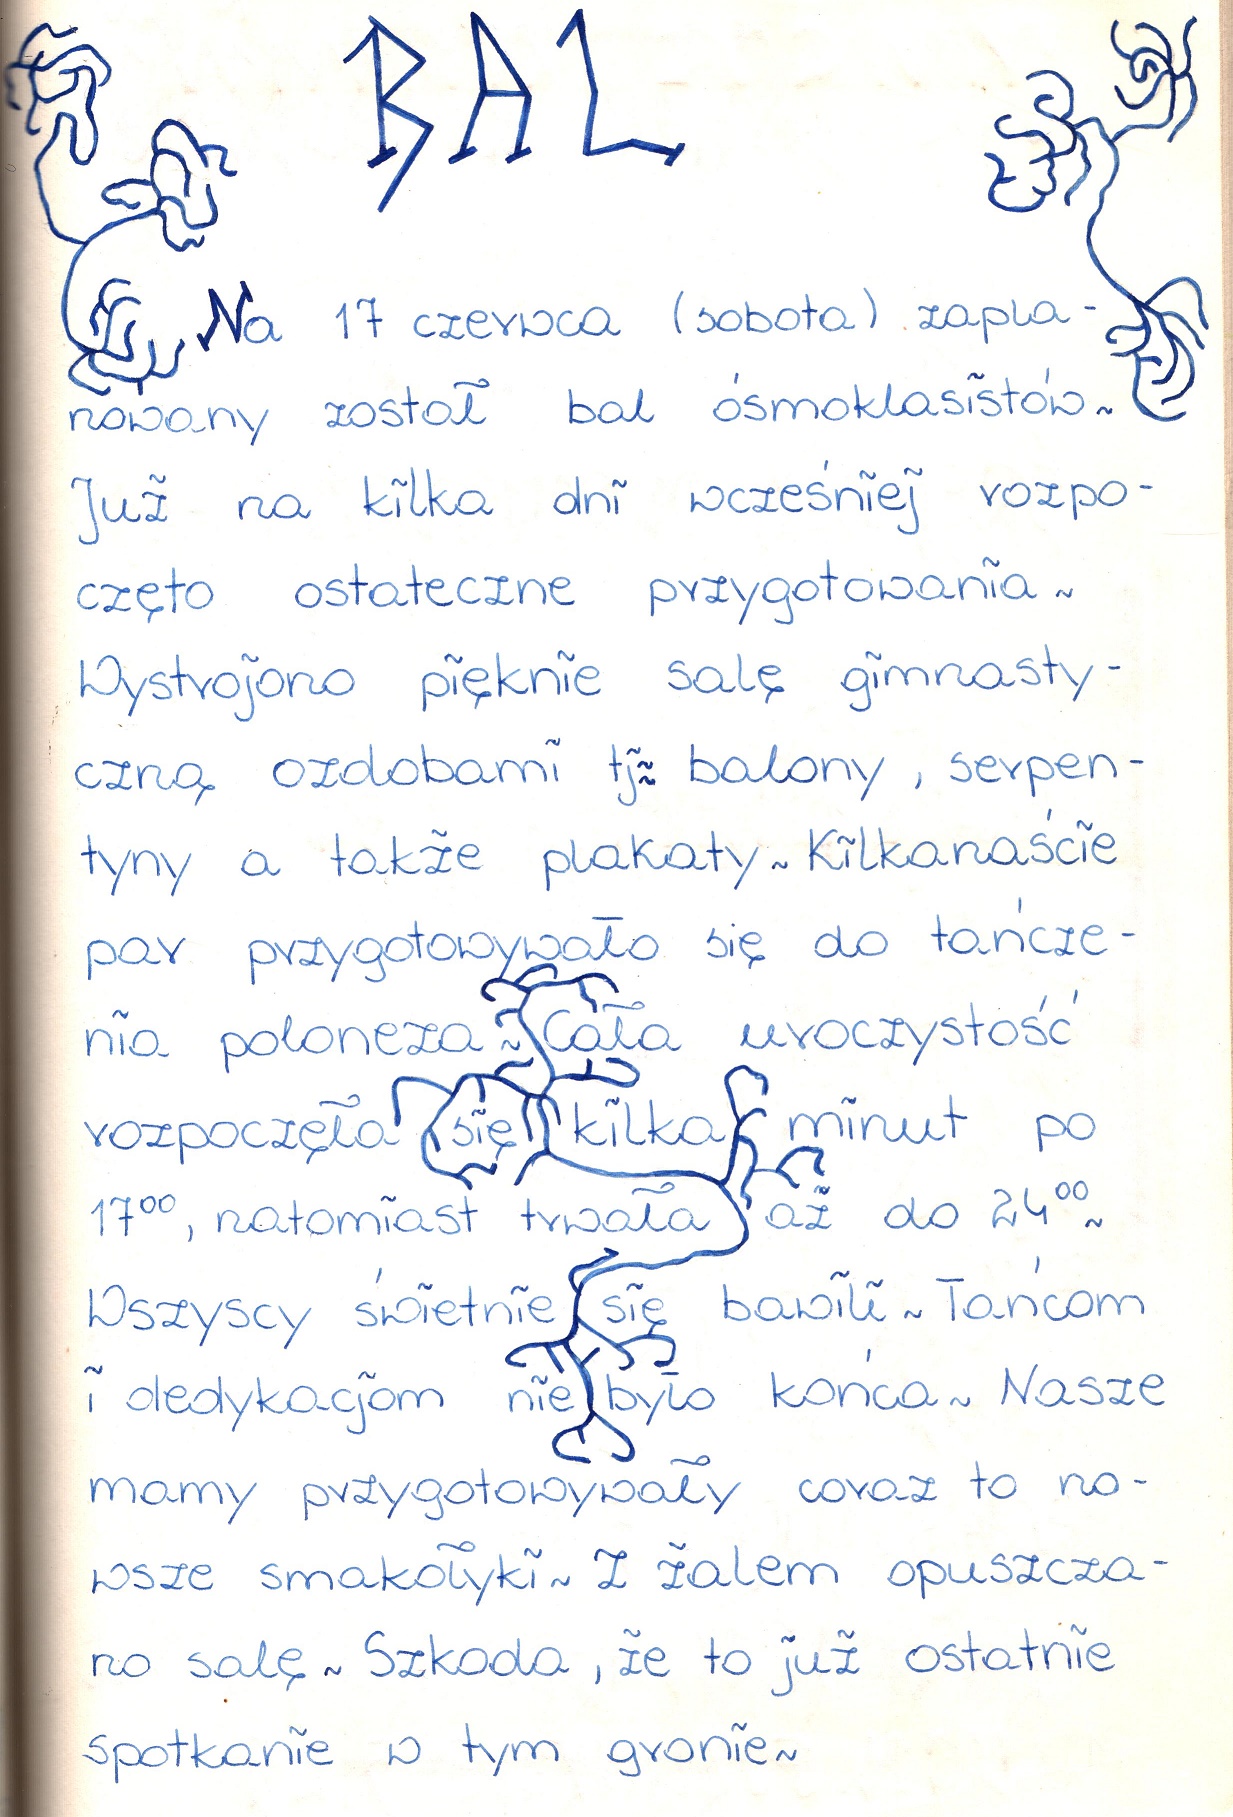 BAL
Na 17 czerwca (sobota) zapla-
nowany został bal ósmoklasistów.
Już na kilka dni wcześniej rozpo-
częto ostateczne przygotowania.
Wystrojono pięknie salę gimnasty-
czną ozdobami tj: balony, serpen-
tyny a także plakaty. Kilkanaście
par przygotowywało się do tańcze-
nia poloneza. Cała uroczystość
rozpoczęła się kilka minut po
17⁰⁰, natomiast trwała aż do 24⁰⁰.
Wszyscy świetnie się bawili. Tańcom
i dedykacjom nie było końca. Nasze
mamy przygotowywały coraz to no-
wsze smakołyki. Z żalem opuszcza-
no salę. Szkoda, że to już ostatnie
spotkanie w tym gronie.